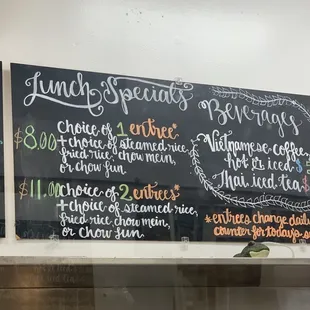 Lunch Specials
$8.00 choice of 1 entree*
+ choice of steamed rice,
fried rice, chow mein,
or chow fun
$11.00 choice of 2 entrees*
+ choice of steamed rice,
fried rice, chow mein or
chow fun
Beverages
Vietnamese coffee
hot or iced
Thai iced tea
*entrees change daily
counter for today's